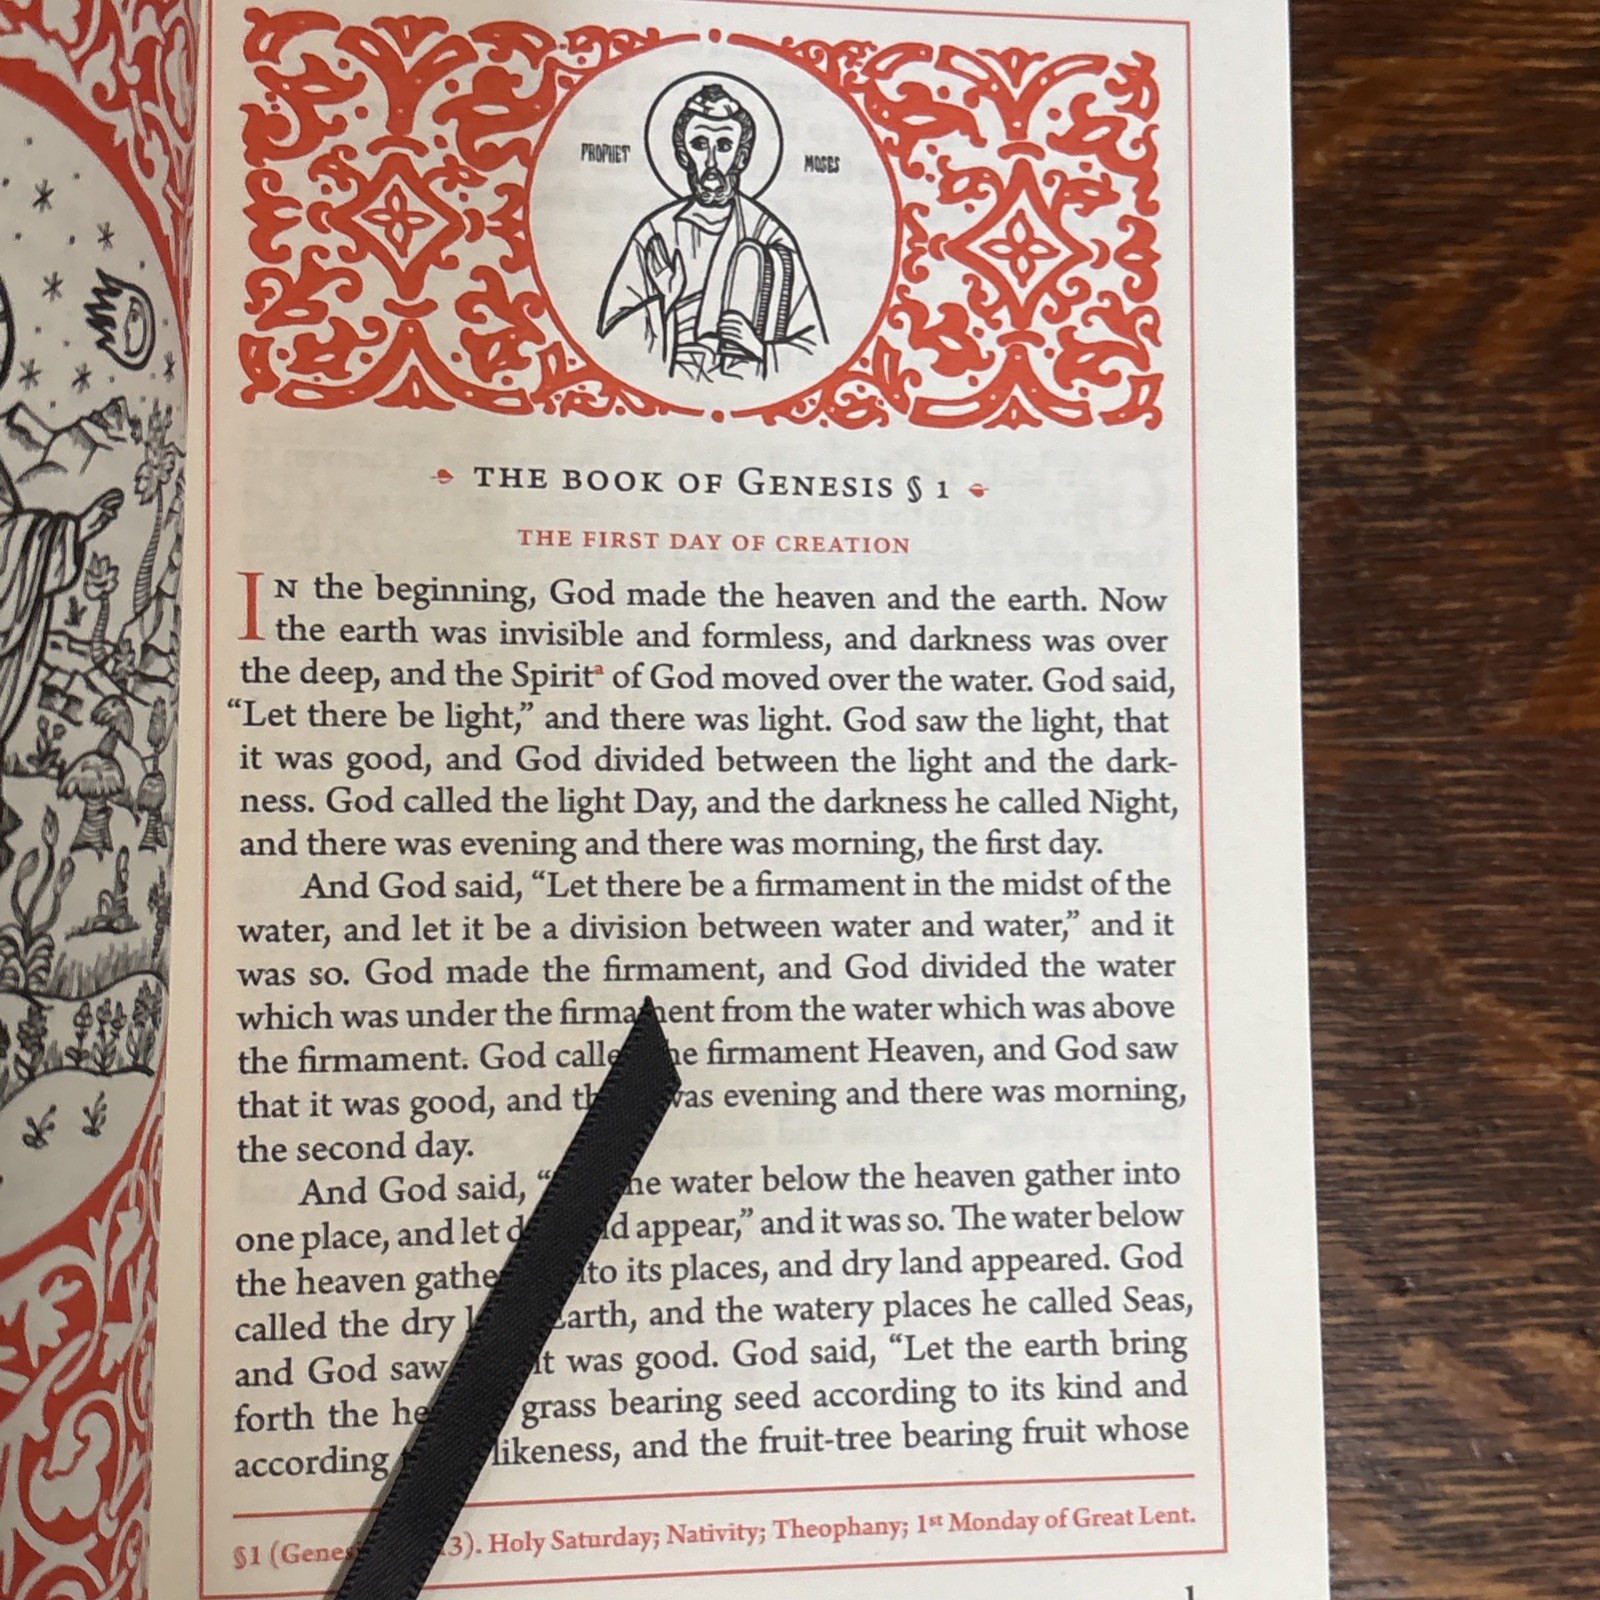 PROPHET MOSES
THE BOOK OF GENESIS § 1
THE FIRST DAY OF CREATION
IN the beginning, God made the heaven and the earth. Now
the earth was invisible and formless, and darkness was over
the deep, and the Spiritᵃ of God moved over the water. God said,
“Let there be light,” and there was light. God saw the light, that
it was good, and God divided between the light and the dark-
ness. God called the light Day, and the darkness he called Night,
and there was evening and there was morning, the first day.
And God said, “Let there be a firmament in the midst of the
water, and let it be a division between water and water,” and it
was so. God made the firmament, and God divided the water
which was under the firmament from the water which was above
the firmament. God firmament Heaven, and God saw
that it was good, and evening and there was morning,
the second day.
And God said, water below the heaven gather into
one place, and let appear,” and it was so. The water below
the heaven to its places, and dry land appeared. God
called the dry and the watery places he called Seas,
and God saw it was good. God said, “Let the earth bring
forth the grass bearing seed according to its kind and
according likeness, and the fruit-tree bearing fruit whose
§1 Holy Saturday; Nativity; Theophany; 1st Monday of Great Lent.
1